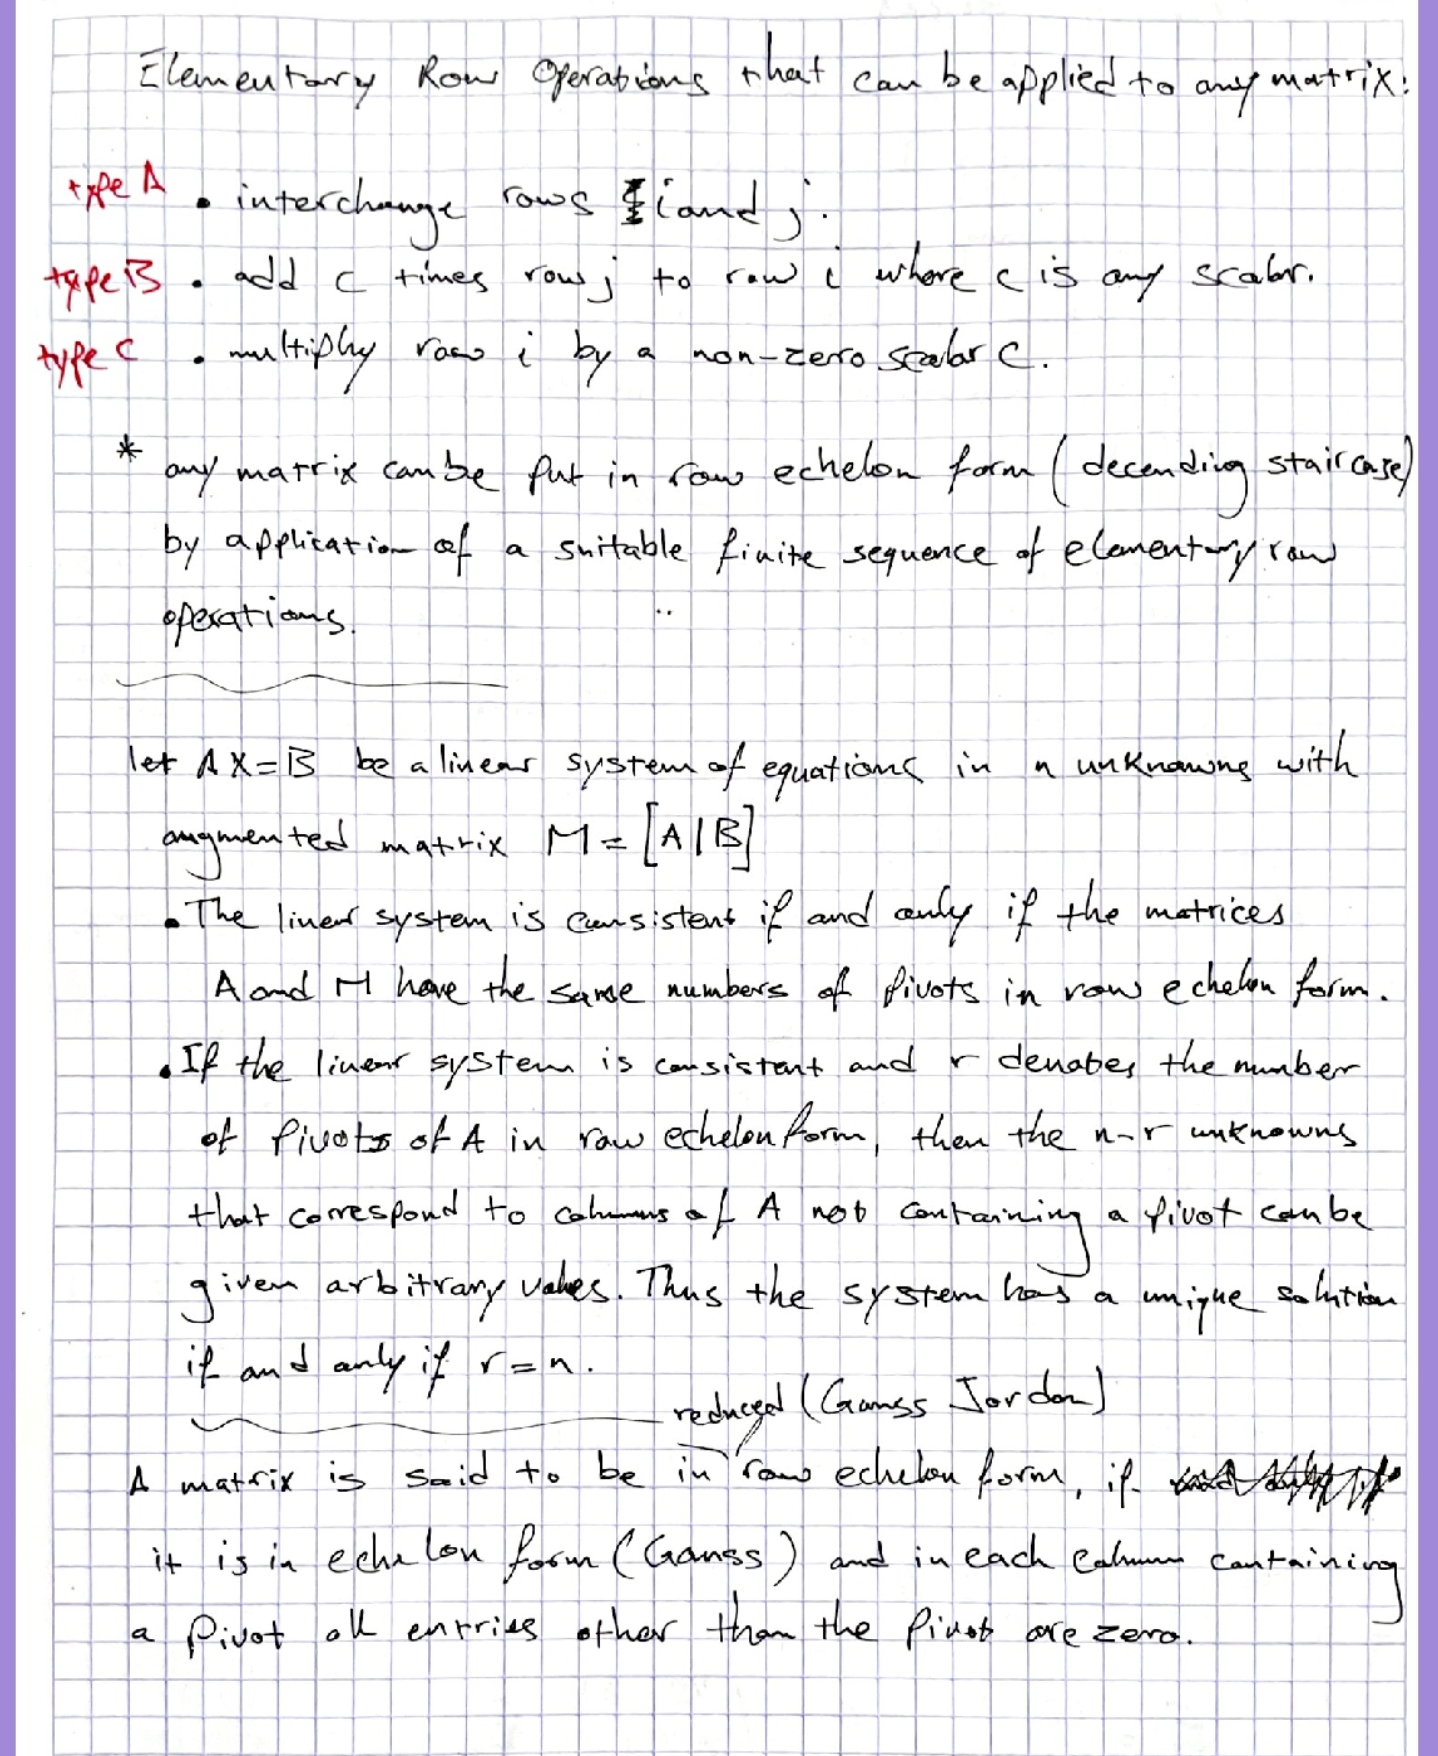 Elementary Row Operations that can be applied to any matrix:
type A • interchange rows i and j.
type B • add c times row j to row i where c is any scalar.
type C • multiply row i by a non-zero scalar c.
* any matrix can be put in row echelon form (decending staircase)
by application of a suitable finite sequence of elementary row
operations.
let AX=B be a linear system of equations in n unknowns with
augmented matrix M = [A|B]
• The linear system is consistent if and only if the matrices
A and M have the same numbers of pivots in row echelon form.
• If the linear system is consistent and r denotes the number
of pivots of A in row echelon form, then the n-r unknowns
that correspond to columns of A not containing a pivot can be
given arbitrary values. Thus the system has a unique solution
if and only if r=n.
reduced (Gauss Jordan)
A matrix is said to be in row echelon form, if
it is in echelon form (Gauss) and in each column containing
a pivot all entries other than the pivot are zero.